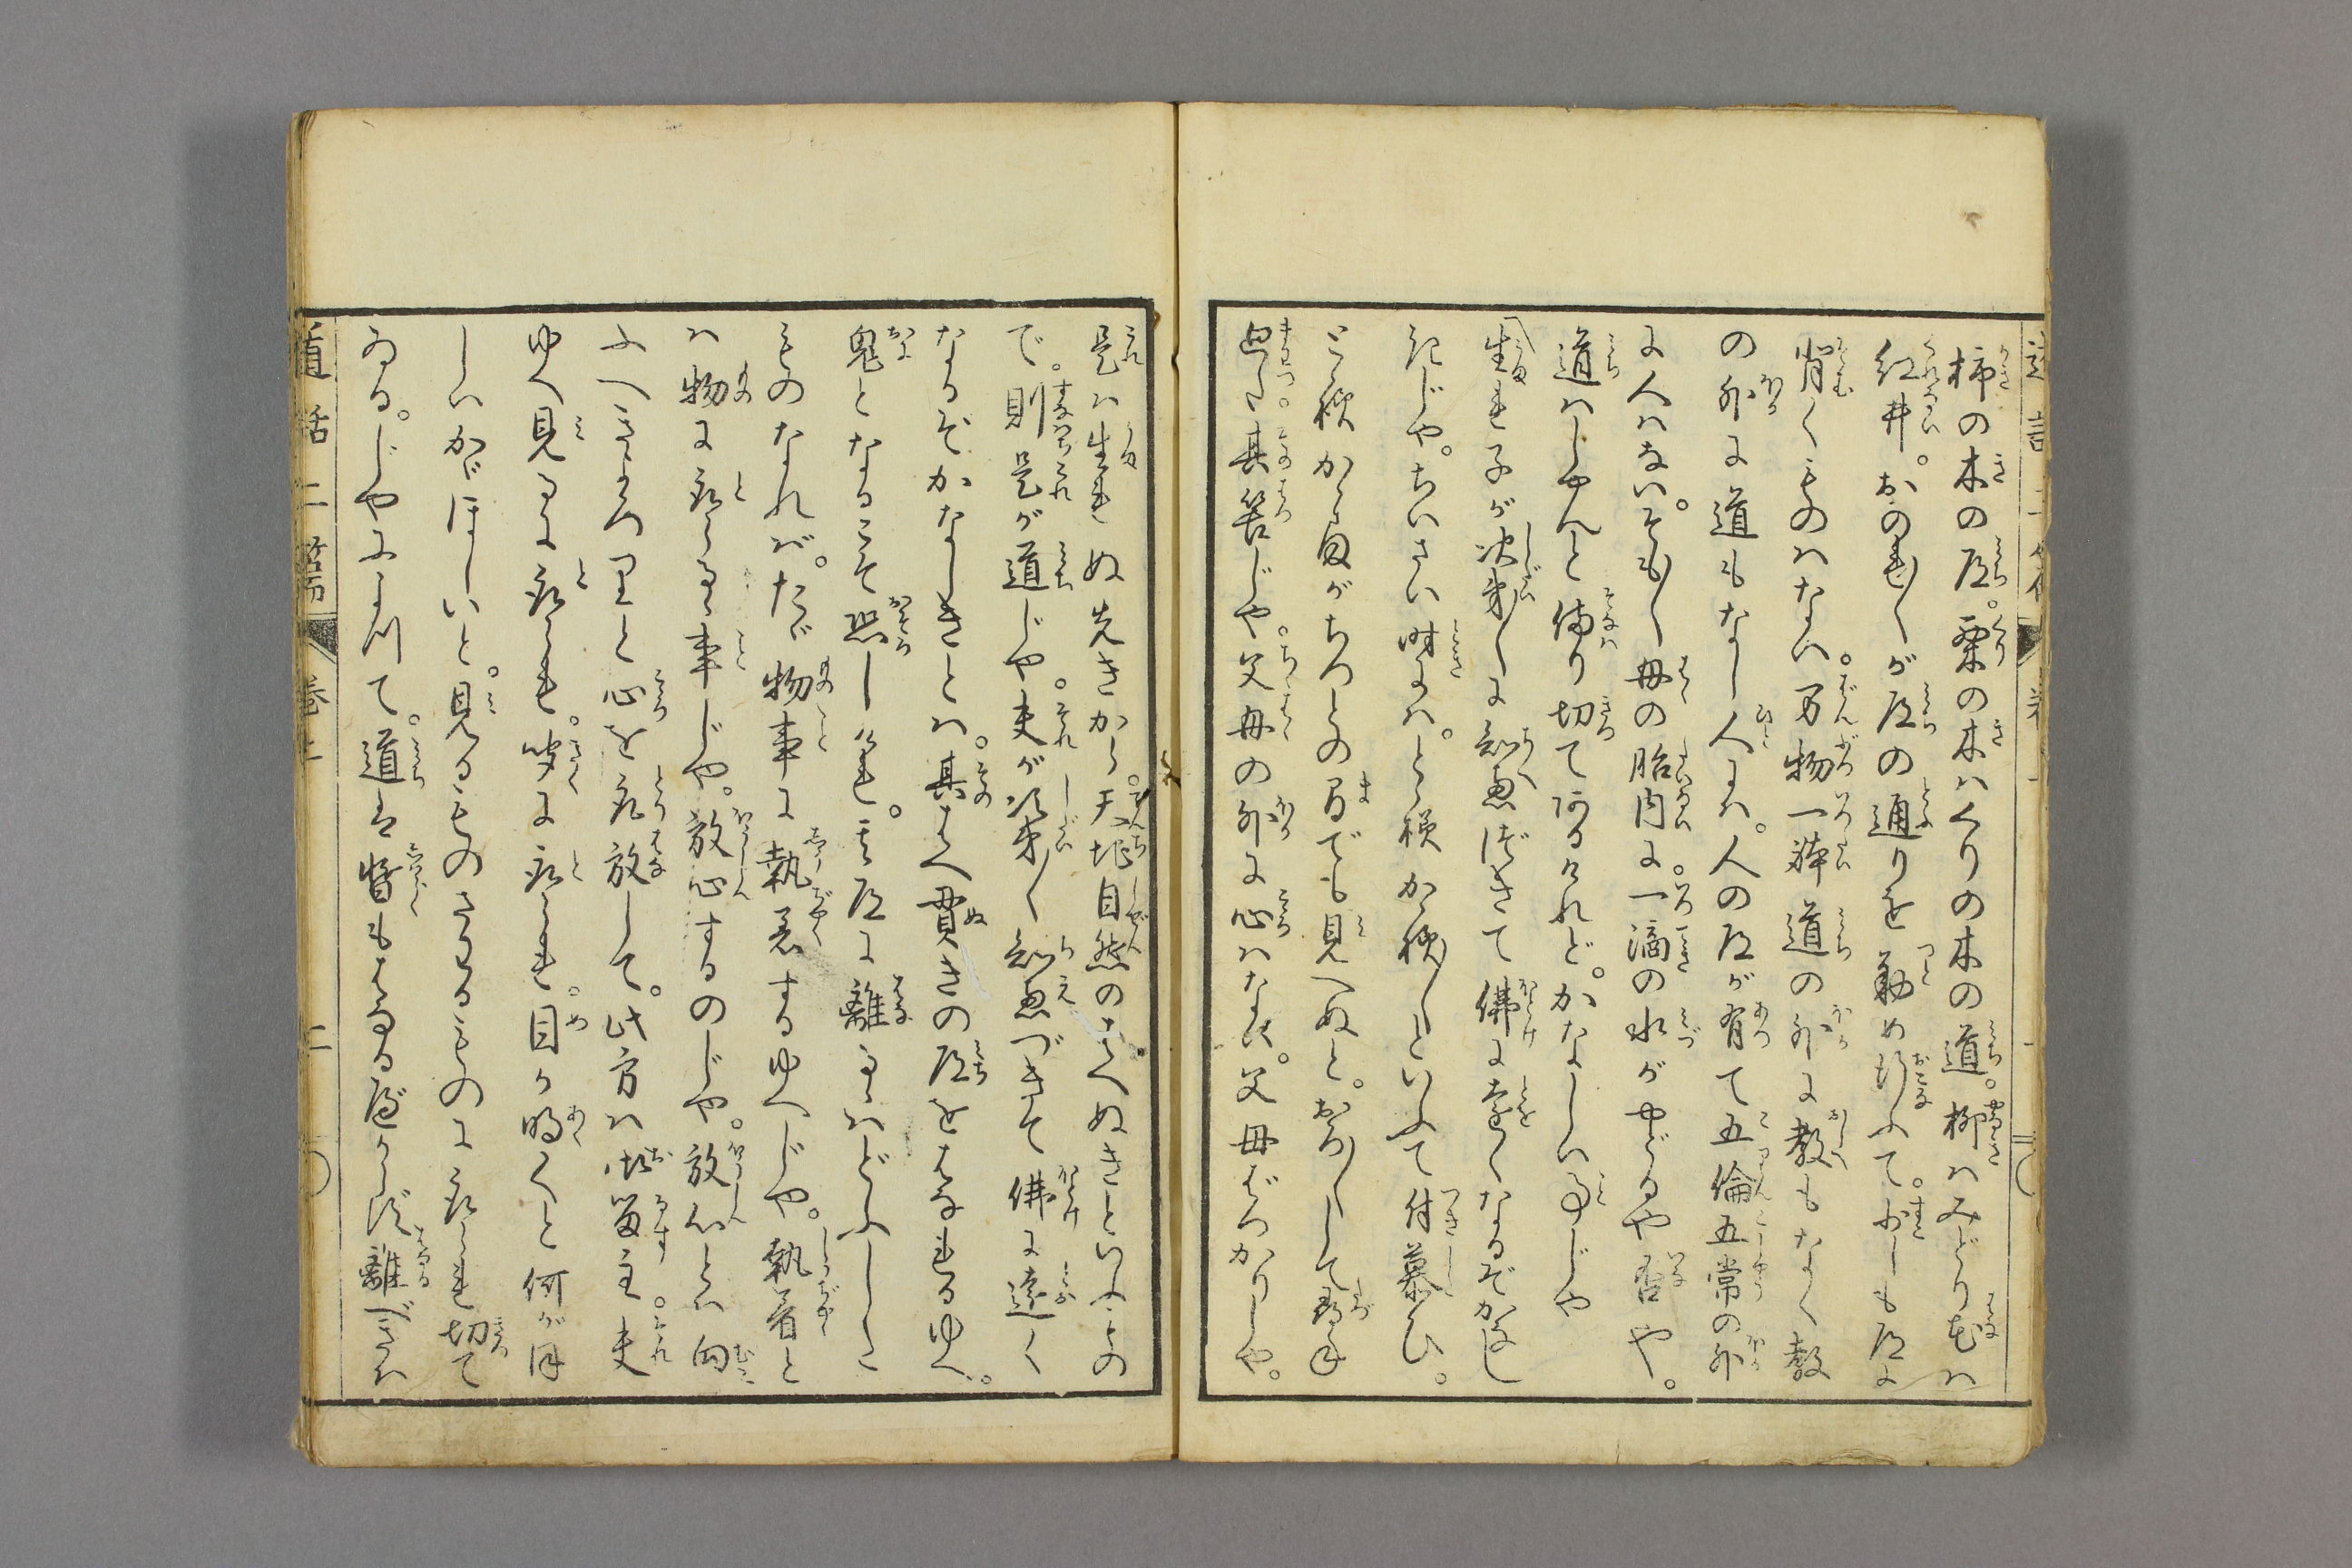 柿の木の道。栗の木ハくりの木の道。柳ハみどり花ハ
紅井。おのれ〱が道の通りを勤め行ふて。少しも道に
背くものハない。万物一躰道の外に教もなく教
の外に道もなし人にハ。人の道が有て五倫五常の外
に人ハない。そも〱母の胎内に一滴の水がやどるや否や。
道ハじやんと備り切てあるけれど。かなしい事じや
生れ子が次第〱に知恵づきて佛に遠くなるぞかなし
きじや。ちいさい時にハ。とゝ様かゝ様〱といふて付慕ひ。
とゝ様かゝ様がちつとの間でも見へぬと。おろ〱して尋ね
廻つた其筈じや。父母の外に心ハなひ。父母ばつかりじや。
是ハ生れぬ先きから。天地自然のさへぬきといふもの
で。則是が道じや。夫が次第〱知恵づきて佛に遠く
なるぞかなしきとハ。其さへ貫きの道をはなれるゆへ。
鬼となるこそ恐しけれ。其道に離るゝハどふした
ものなれバ。たゞ物事に執着するゆへじや。執着と
ハ物に取らるゝ事じや。放心するのじや。放心とハ向
ふへきよろりと心を取放して。此方ハ御留主。夫
ゆへ見るに取られ。聞に取られ。目が明くと何がほ
しいかゞほしいと。見るものさわるものに取られ切て
ゐる。じやによつて。道は暫もはなるべからず離べきハ
道話二篇 巻上 二